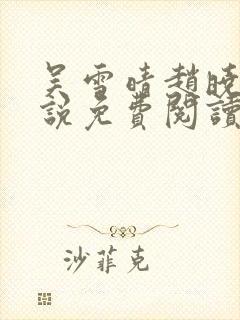 吴雪晴趙晓
說免費閱讀
沙菲克